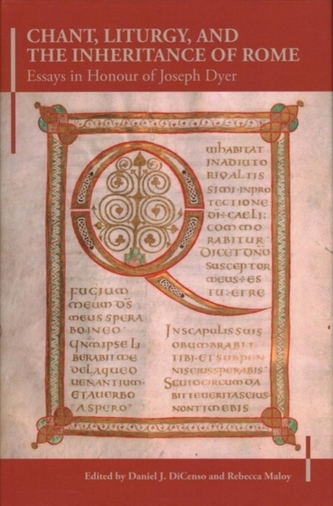 CHANT, LITURGY, AND
THE INHERITANCE OF ROME
Essays in Honour of Joseph Dyer
Q
UIHABITAT
INADIUTO
RIOALTIS
SIMI·INPRO
TECTIONE
DI·CAELI:
COMMO
RABITUR
DICET DNO
SUSCEPTOR
MEUS·ES
TU·ETRE
FUGIUM
MEUM DS
MEUS SPERA
BO INEO
QMIPSE LI
BERABIT ME
DELAQUEO
UENANTIUM·
ETAUERBO
ASPERO·
INSCAPULIS SUIS
OBUMBRABIT
TIBI·ET SUBPEN
NISEIUS SPERABIS·
SCUTOCIRCUMDA
BITTEUERITASEIUS
NONTIMEBIS
Edited by Daniel J. DiCenso and Rebecca Maloy